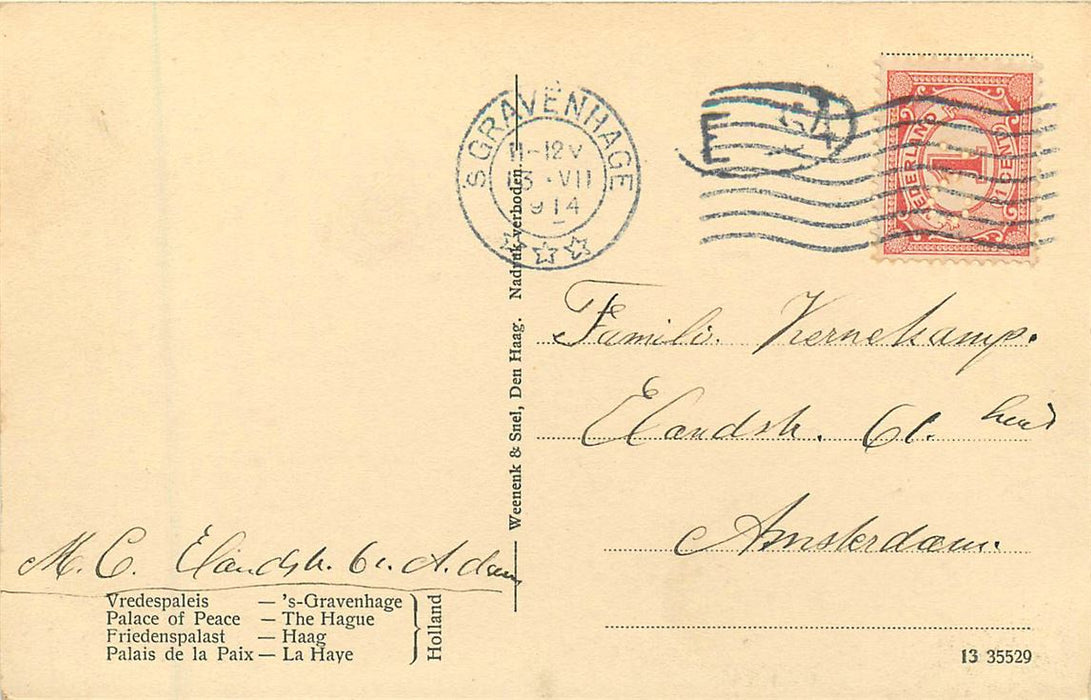 'S GRAVENHAGE
11-12V
13.VII
1914
NEDERLAND
1
1 CENT
Familie. Kernekamp.
Elandstr. 61. huis
Amsterdam.
M. C. Elandstr. 61. A.dam
Weenenk & Snel, Den Haag. Nadruk verboden.
Vredespaleis — 's-Gravenhage
Palace of Peace — The Hague
Friedenspalast — Haag
Palais de la Paix — La Haye
Holland
13 35529